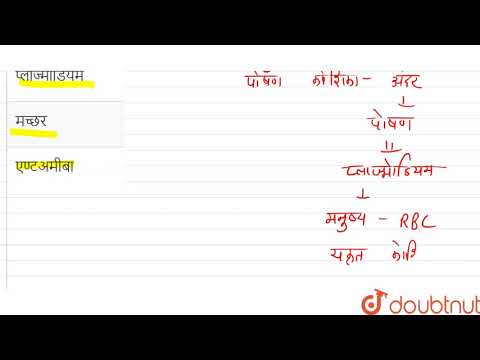 प्लाज्मोडियम
मच्छर
एण्टअमीबा
पोषण कोशिका - अंदर
पोषण
प्लाज्मोडियम
मनुष्य - RBC
यकृत कोशि
doubtnut